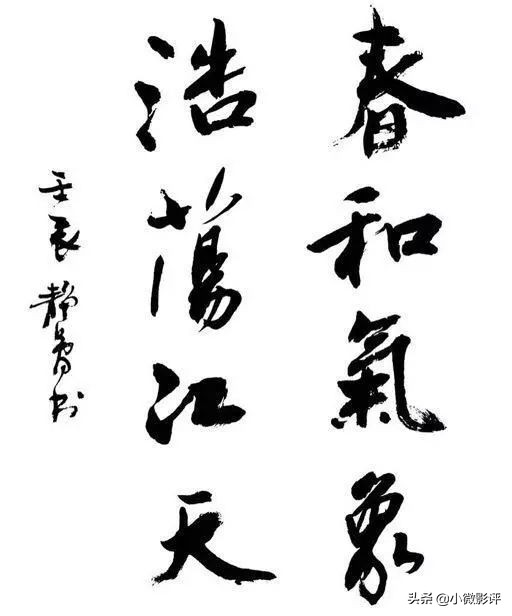 春和氣象
浩蕩江天
壬辰 靜 书
头条 @小微影评